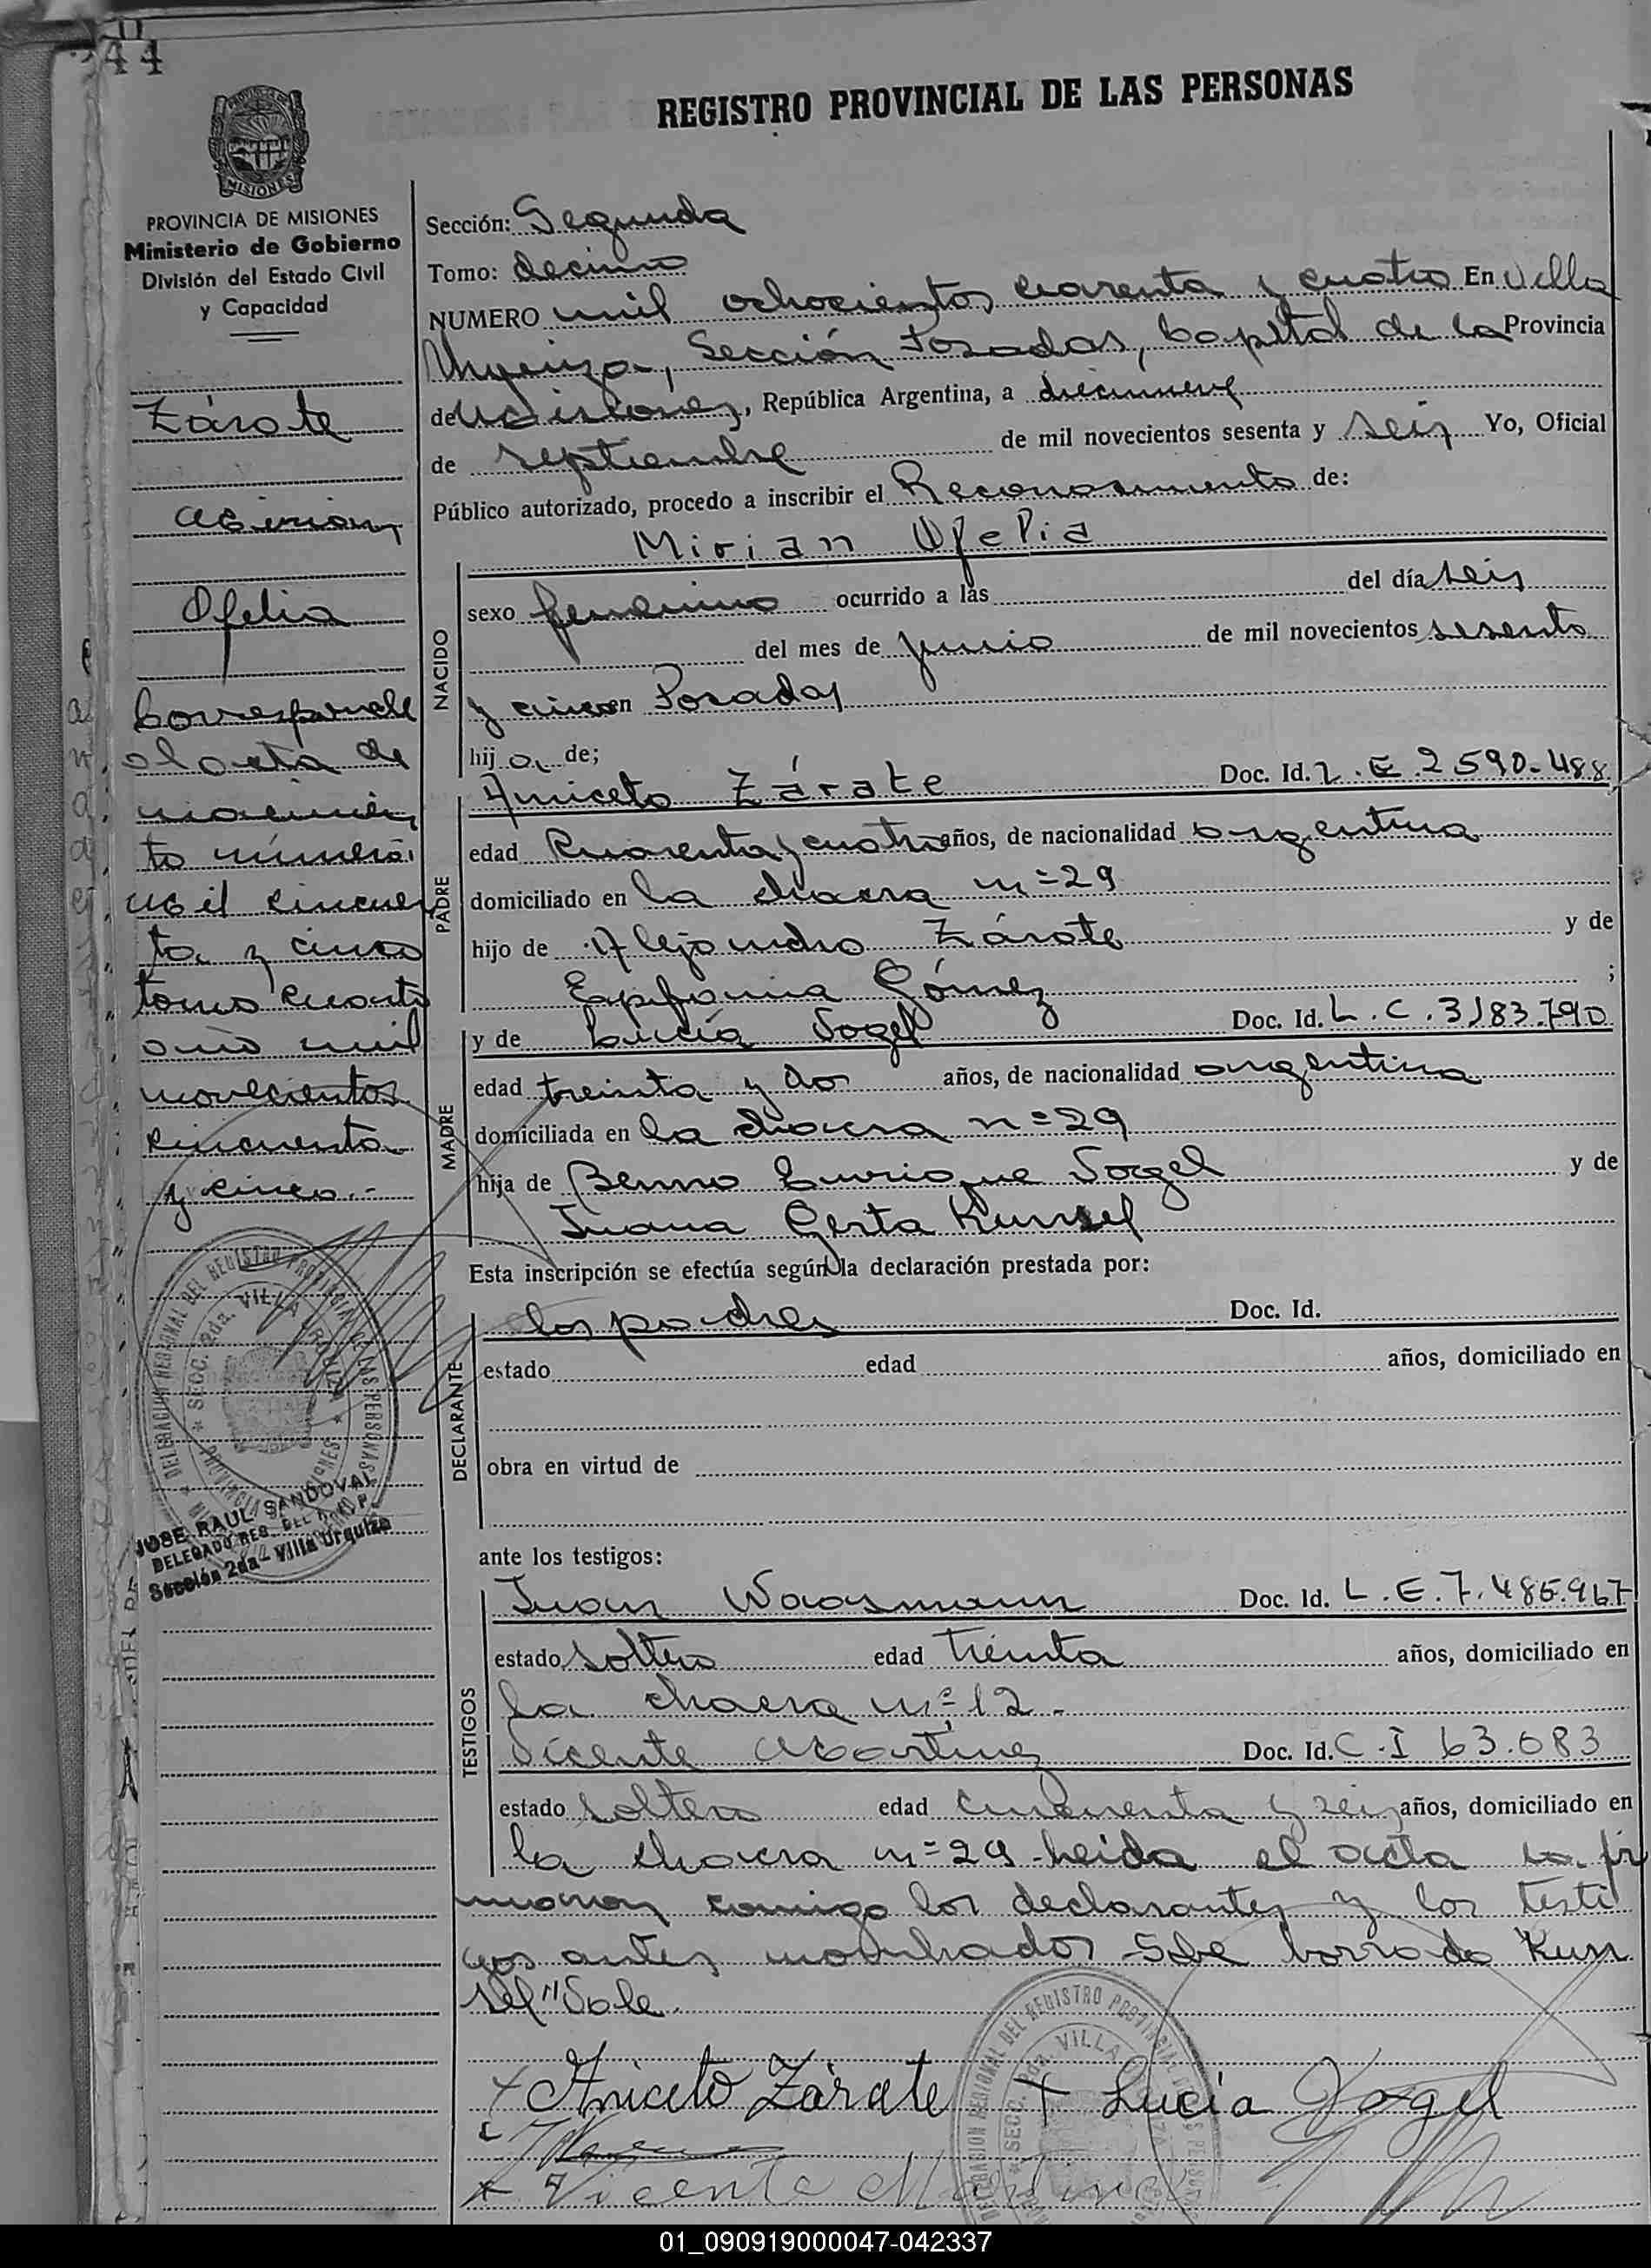 44
REGISTRO PROVINCIAL DE LAS PERSONAS
PROVINCIA DE MISIONES
Ministerio de Gobierno
División del Estado Civil
y Capacidad
Zárate
Mirian
Ofelia
Corresponde
al acta de
nacimien
to número
Mil cincuen
ta y cinco
tomo cuarto
año mil
novecientos
cincuenta
y cinco.-
JOSE RAUL SANDOVAL
DELEGADO REG. DEL R. P. P.
Sección 2da- Villa Urquiza
Sección: Segunda
Tomo: decimo
NUMERO mil ochocientos cuarenta y cuatro En Villa
Urquiza, Sección Posadas, Capital de la Provincia
de Misiones, República Argentina, a diecinueve
de septiembre de mil novecientos sesenta y seis Yo, Oficial
Público autorizado, procedo a inscribir el Reconosimiento de:
Mirian Ofelia
NACIDO
sexo femenino ocurrido a las del día seis
del mes de junio de mil novecientos sesenta
y cinco en Posadas
hija de;
PADRE
Aniceto Zárate Doc. Id. L.E. 2590.488
edad Cuarenta y cuatro años, de nacionalidad argentina
domiciliado en la chacra nº 29
hijo de Alejandro Zárate y de
Epifania Gómez ;
MADRE
y de Lucía Vogel Doc. Id. L.C. 3183.790
edad treinta y do años, de nacionalidad argentina
domiciliada en la chacra nº 29
hija de Benno Enrique Vogel y de
Juana Gerta Kunsel
Esta inscripción se efectúa según la declaración prestada por:
DECLARANTE
los padres Doc. Id.
estado edad años, domiciliado en
obra en virtud de
ante los testigos:
TESTIGOS
Juan Waasmann Doc. Id. L.E. 7.485.967
estado soltero edad treinta años, domiciliado en
la chacra nº 12.-
Vicente Martinez Doc. Id. C.I 63.683
estado soltero edad cincuenta y seis años, domiciliado en
la chacra nº 29 - Leida el acta la fir
maron conmigo los declarantes y los testi
gos antes nombrados - Sobre borrado Kun
sel" Vale.
x Aniceto Zárate + Lucía Vogel
x Vicente Martinez
DELEGACION REGIONAL DEL REGISTRO PROVINCIAL DE LAS PERSONAS
SECC. 2da. VILLA URQUIZA
PROVINCIA MISIONES
01_090919000047-042337